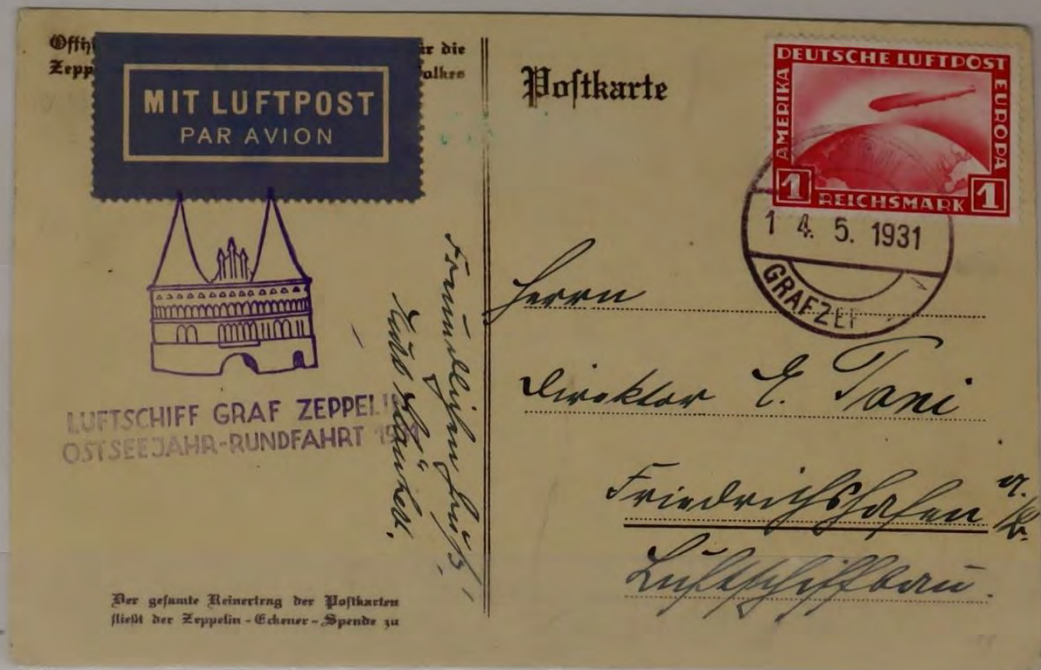 Offiz ür die
Zepp olkes
MIT LUFTPOST
PAR AVION
LUFTSCHIFF GRAF ZEPPELIN
OSTSEEJAHR-RUNDFAHRT 1931
Freundlichen Gruß!
Der gesamte Reinertrag der Postkarten
fließt der Zeppelin-Eckener-Spende zu
Postkarte
DEUTSCHE LUFTPOST
AMERIKA
EUROPA
1 REICHSMARK 1
1 4. 5. 1931
GRAF ZEP
Herrn
Direktor E. Tani
Friedrichshafen a./B.
Luftschiffbau.